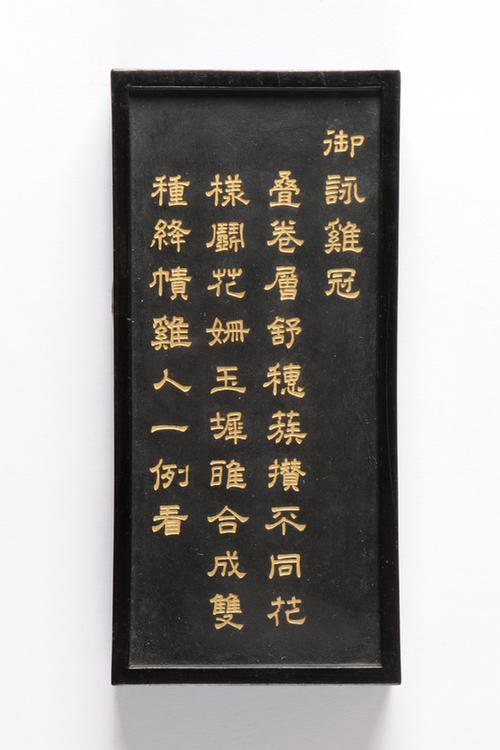 御詠雞冠
叠卷層舒穗蔟攢不同花
樣鬭花姍玉墀唯合成雙
種絳幘雞人一例看